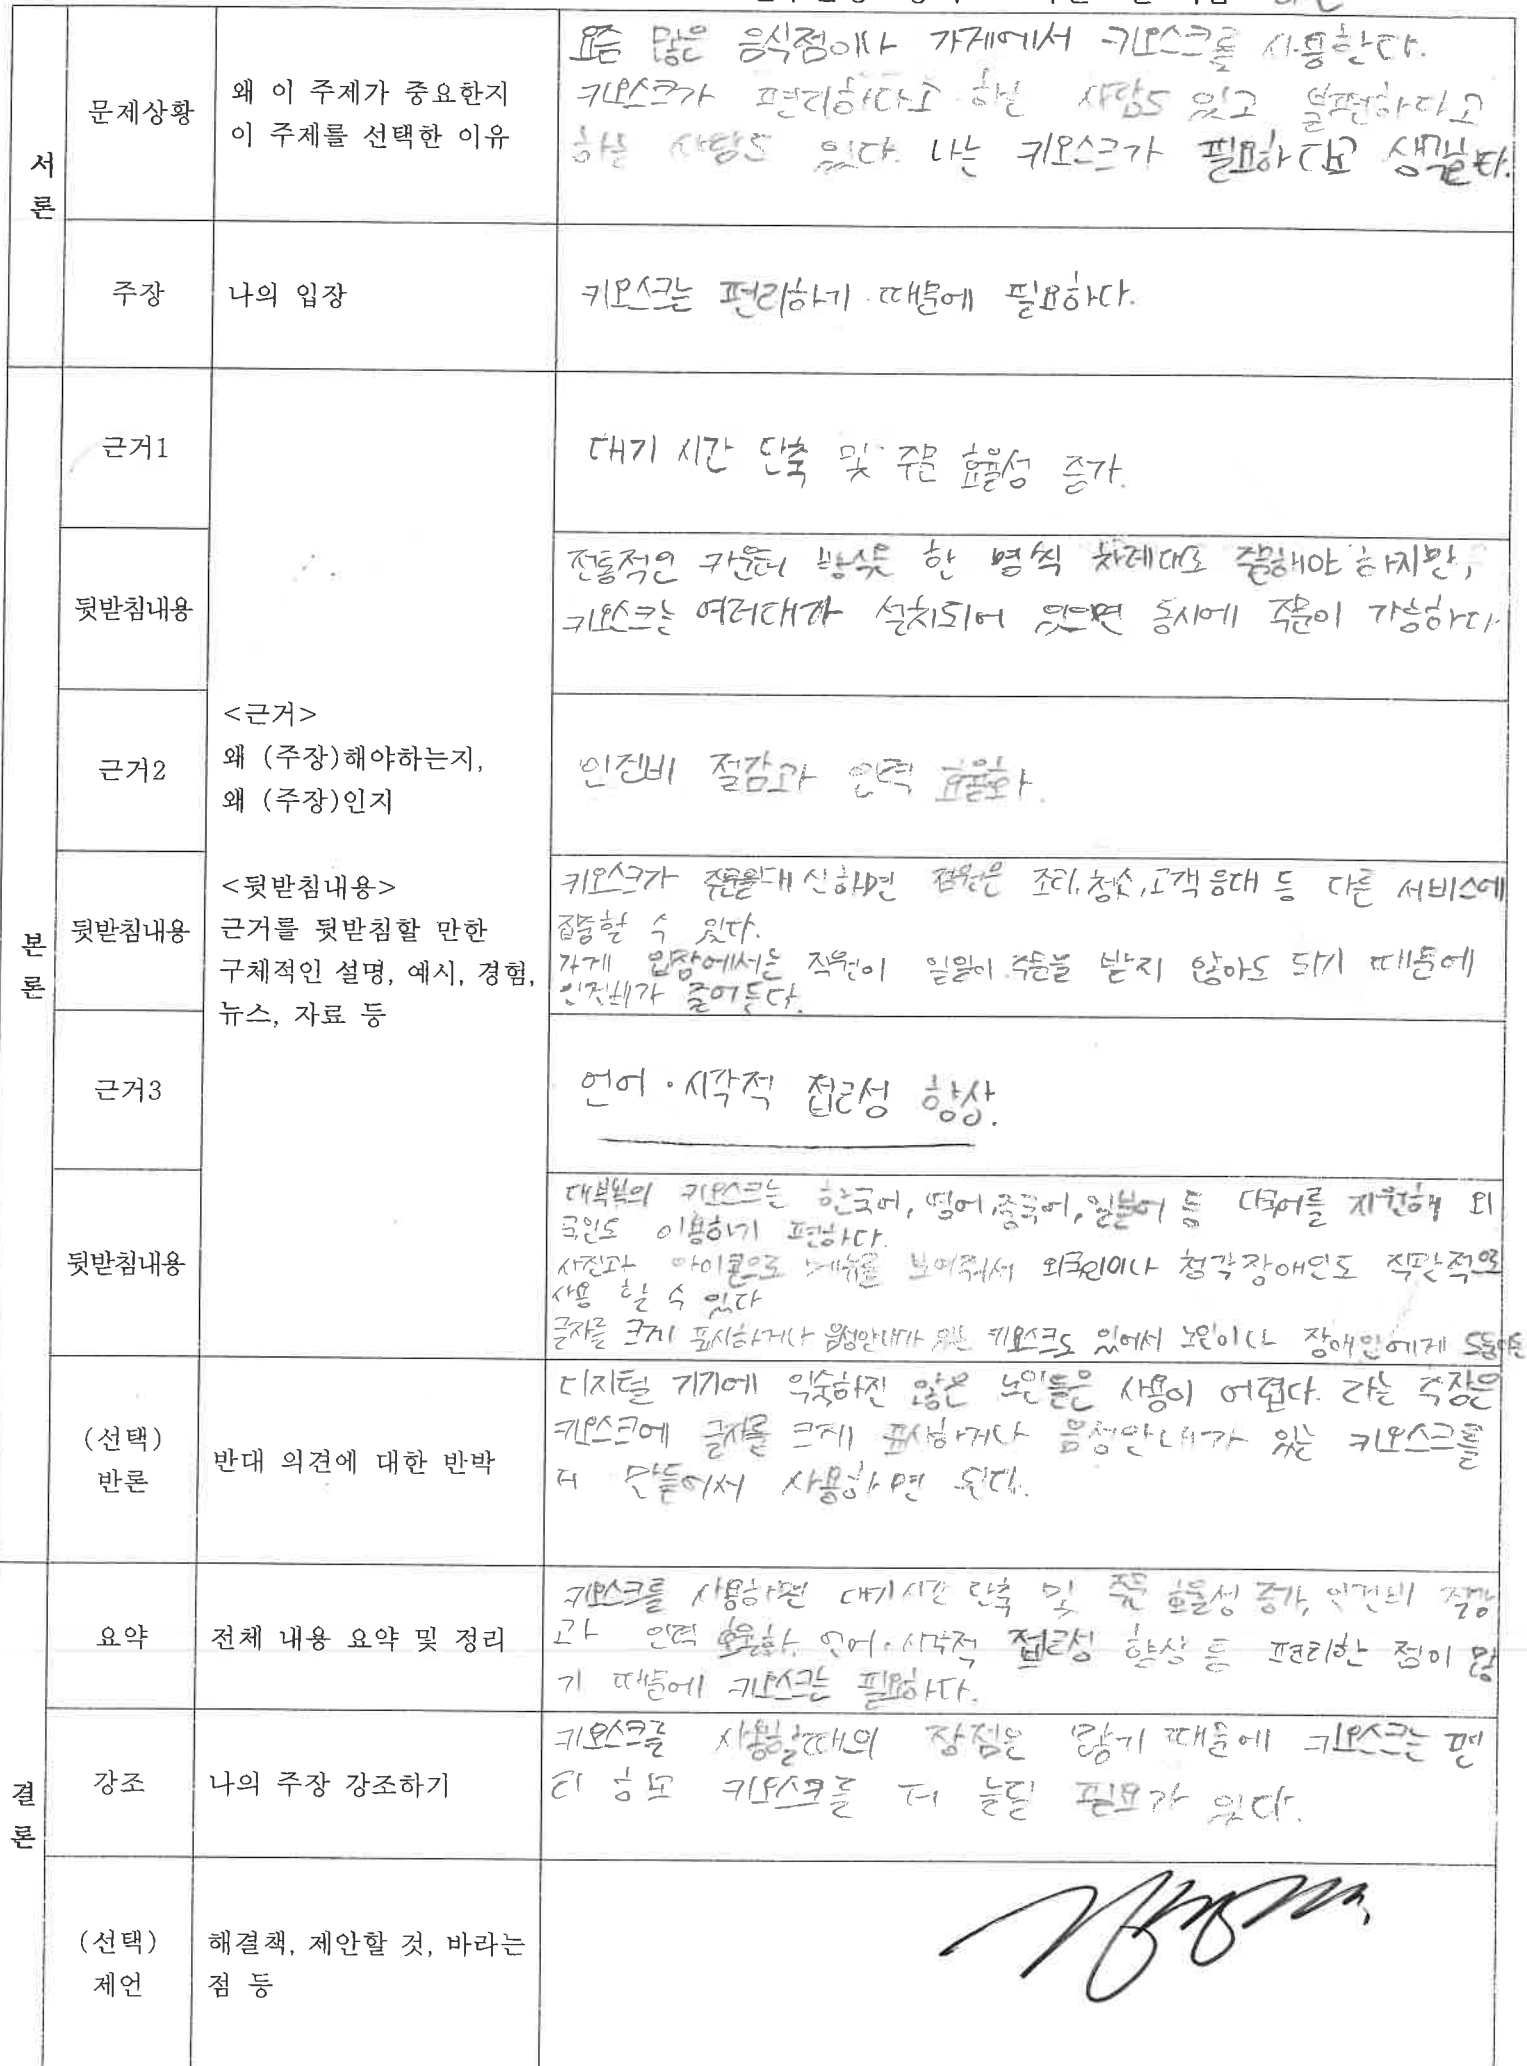 서론
문제상황
왜 이 주제가 중요한지
이 주제를 선택한 이유
요즘 많은 음식점이나 가게에서 키오스크를 사용한다.
키오스크가 편리하다고 하는 사람도 있고 불편하다고
하는 사람도 있다. 나는 키오스크가 필요하다고 생각한다.
주장
나의 입장
키오스크는 편리하기 때문에 필요하다.
본론
근거1
대기 시간 단축 및 주문 효율성 증가.
뒷받침내용
전통적인 카운터 방식은 한 명씩 차례대로 주문해야 하지만,
키오스크는 여러대가 설치되어 있으면 동시에 주문이 가능하다
<근거>
왜 (주장)해야하는지,
왜 (주장)인지
<뒷받침내용>
근거를 뒷받침할 만한
구체적인 설명, 예시, 경험,
뉴스, 자료 등
근거2
인건비 절감과 인력 효율화.
뒷받침내용
키오스크가 주문을 대신하면 점원은 조리, 청소, 고객 응대 등 다른 서비스에
집중할 수 있다.
가게 입장에서는 직원이 일일이 주문을 받지 않아도 되기 때문에
인건비가 줄어든다.
근거3
언어·시각적 접근성 향상.
뒷받침내용
대부분의 키오스크는 한국어, 영어, 중국어, 일본어 등 다국어를 지원해 외
국인도 이용하기 편하다.
사진과 아이콘으로 메뉴를 보여줘서 외국인이나 청각장애인도 직관적으로
사용 할 수 있다
글자를 크게 표시하거나 음성안내가 있는 키오스크도 있어서 노인이나 장애인에게
(선택)
반론
반대 의견에 대한 반박
디지털 기기에 익숙하진 않은 노인들은 사용이 어렵다. 라는 주장은
키오스크에 글자를 크게 표시하거나 음성안내가 있는 키오스크를
더 만들어서 사용하면 된다.
결론
요약
전체 내용 요약 및 정리
키오스크를 사용하면 대기시간 단축 및 주문 효율성 증가, 인건비 절감
과 인력 효율화, 언어·시각적 접근성 향상 등 편리한 점이 많
기 때문에 키오스크는 필요하다.
강조
나의 주장 강조하기
키오스크를 사용할때의 장점은 많기 때문에 키오스크는 편
리 하고 키오스크를 더 늘릴 필요가 있다.
(선택)
제언
해결책, 제안할 것, 바라는
점 등